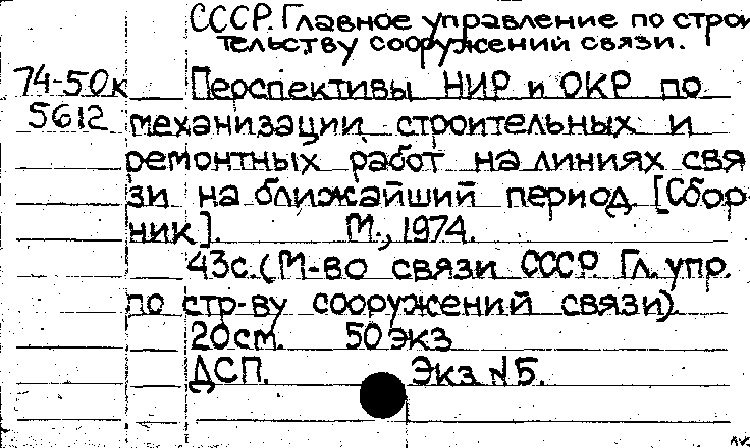 СССР. Главное управление по строи
тельству сооружений связи.
74-50к Перспективы НИР и ОКР по
5612 механизации строительных и
ремонтных работ на линиях свя
зи на ближайший период [Сбор
ник]. М., 1974.
43с. (М-во связи СССР. Гл. упр.
по стр-ву сооружений связи).
20см. 50 экз
ДСП. Экз №5.